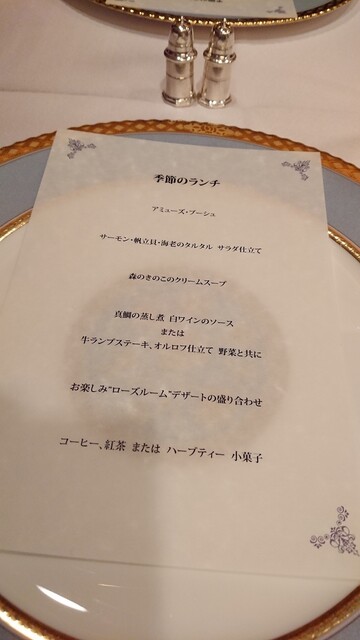 季節のランチ
アミューズ・ブーシュ
サーモン・帆立貝・海老のタルタル サラダ仕立て
森のきのこのクリームスープ
真鯛の蒸し煮 白ワインのソース
または
牛ランプステーキ、オルロフ仕立て 野菜と共に
お楽しみ"ローズルーム"デザートの盛り合わせ
コーヒー、紅茶 または ハーブティー 小菓子